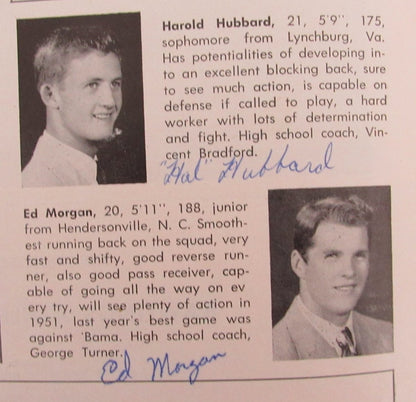 Harold Hubbard, 21, 5'9", 175,
sophomore from Lynchburg, Va.
Has potentialities of developing in-
to an excellent blocking back, sure
to see much action, is capable on
defense if called to play, a hard
worker with lots of determination
and fight. High school coach, Vin-
cent Bradford.
"Hal" Hubbard
Ed Morgan, 20, 5'11", 188, junior
from Hendersonville, N. C. Smooth-
est running back on the squad, very
fast and shifty, good reverse run-
ner, also good pass receiver, cap-
able of going all the way on ev
ery try, will see plenty of action in
1951, last year's best game was
against 'Bama. High school coach,
George Turner.
Ed Morgan